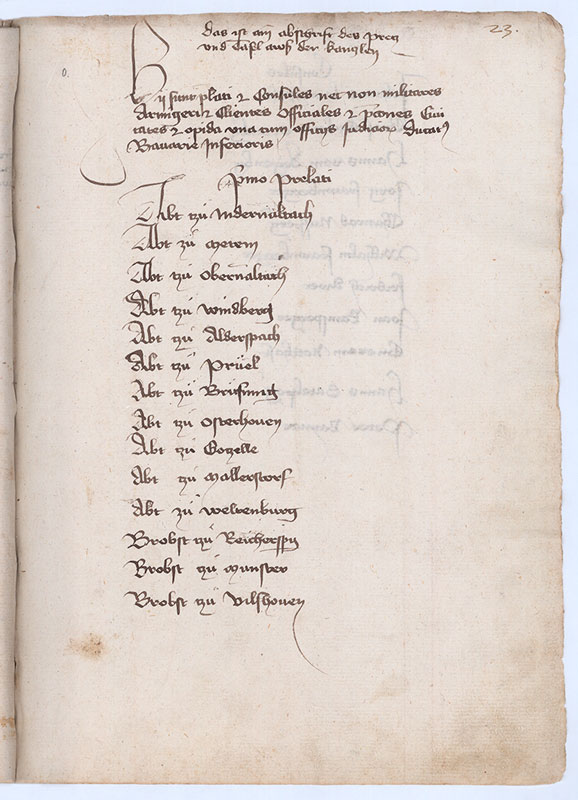 23.
das ist ain abschrifft des preg
und Tafl aws der kanczley
Hy sunt plati et Consules nec non militares
Armigeri et Clientes Officiales et pcones Civi
tates et opida una cum officiis Judicior ducat9
Bavarie Inferioris
Pmo Prelati
Abt tzu Nidernaltach
Abt zu Metem
Abt tzu Obernaltach
Abt tzu Windberg
Abt tzu Alderspach
Abt tzu Prüel
Abt tzu
Abt tzu Osterhoven
Abt zu Gotzelle
Abt tzu Mallerstorf
Abt zu Weltenburg
Brobst tzu Reicherspg
Brobst tzu Munster
Brobst tzu Vilshoven